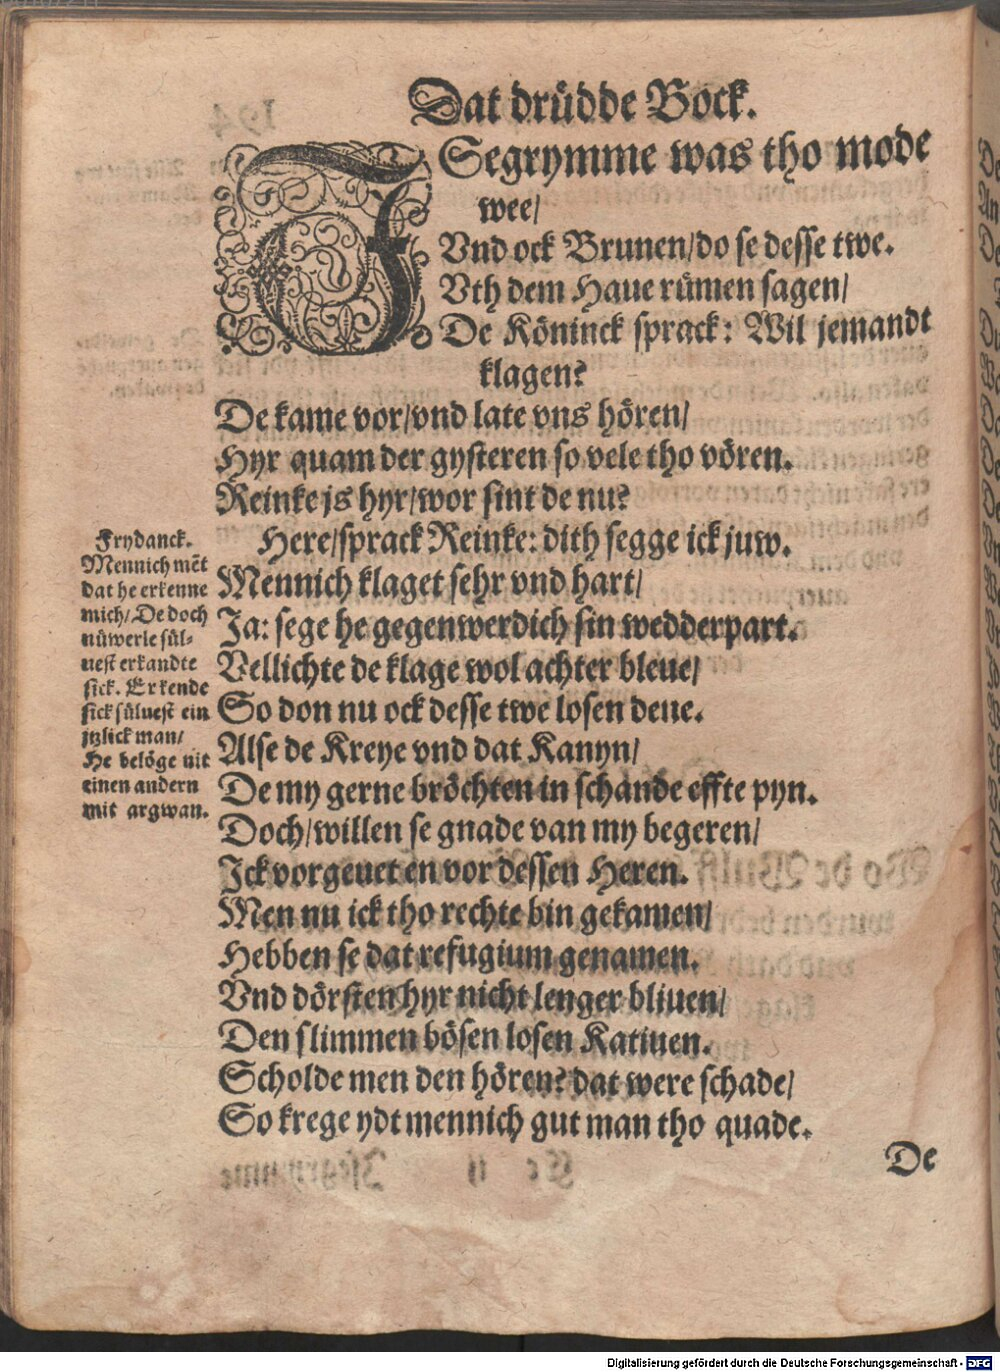 Dat drüdde Bock.
ISegrymme was tho mode
wee/
Vnd ock Brunen/do se desse twe.
Vth dem Haue rümen sagen/
De Köninck sprack: Wil jemandt
klagen?
De kame vor/vnd late vns hören/
Hyr quam der gysteren so vele tho vören.
Reinke js hyr/wor sint de nu?
Here/sprack Reinke: dith segge ick juw.
Mennich klaget sehr vnd hart/
Ja: sege he gegenwerdich sin wedderpart.
Vellichte de klage wol achter bleue/
So don nu ock desse twe losen deue.
Alse de Kreye vnd dat Kanyn/
De my gerne bröchten in schande effte pyn.
Doch/willen se gnade van my begeren/
Ick vorgeuet en vor dessen Heren.
Men nu ick tho rechte bin gekamen/
Hebben se dat refugium genamen.
Vnd dörsten hyr nicht lenger bliuen/
Den slimmen bösen losen Katiuen.
Scholde men den hören? dat were schade/
So krege ydt mennich gut man tho quade.
De
Frydanck.
Mennich mēt
dat he erkenne
mich/De doch
nüwerle sül-
uest erkandte
sick. Erkende
sick süluest ein
jtzlick man/
He belöge nit
einen andern
mit argwan.
Digitalisierung gefördert durch die Deutsche Forschungsgemeinschaft - DFG